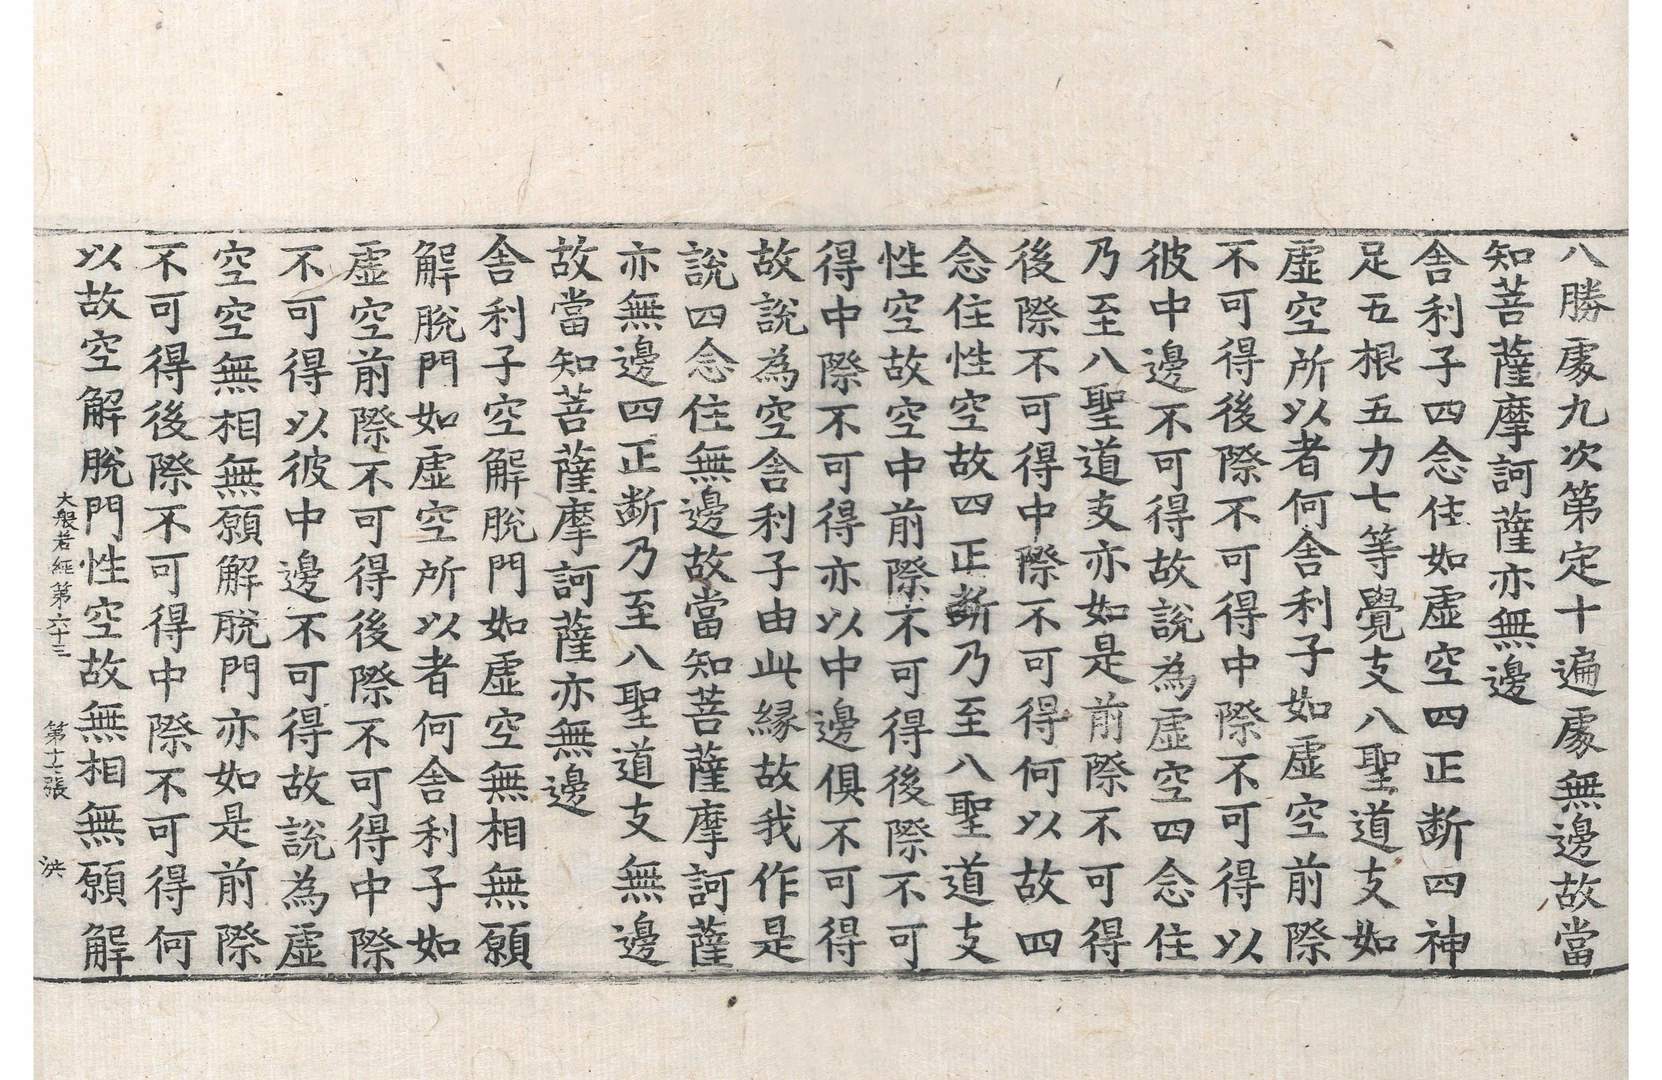 八勝處九次第定十遍處無邊故當
知菩薩摩訶薩亦無邊
舍利子四念住如虛空四正斷四神
足五根五力七等覺支八聖道支如
虛空所以者何舍利子如虛空前際
不可得後際不可得中際不可得以
彼中邊不可得故說為虛空四念住
乃至八聖道支亦如是前際不可得
後際不可得中際不可得何以故四
念住性空故四正斷乃至八聖道支
性空故空中前際不可得後際不可
得中際不可得亦以中邊俱不可得
故說為空舍利子由此緣故我作是
說四念住無邊故當知菩薩摩訶薩
亦無邊四正斷乃至八聖道支無邊
故當知菩薩摩訶薩亦無邊
舍利子空解脫門如虛空無相無願
解脫門如虛空所以者何舍利子如
虛空前際不可得後際不可得中際
不可得以彼中邊不可得故說為虛
空空無相無願解脫門亦如是前際
不可得後際不可得中際不可得何
以故空解脫門性空故無相無願解
大般若經第六十三 第十七張 洪